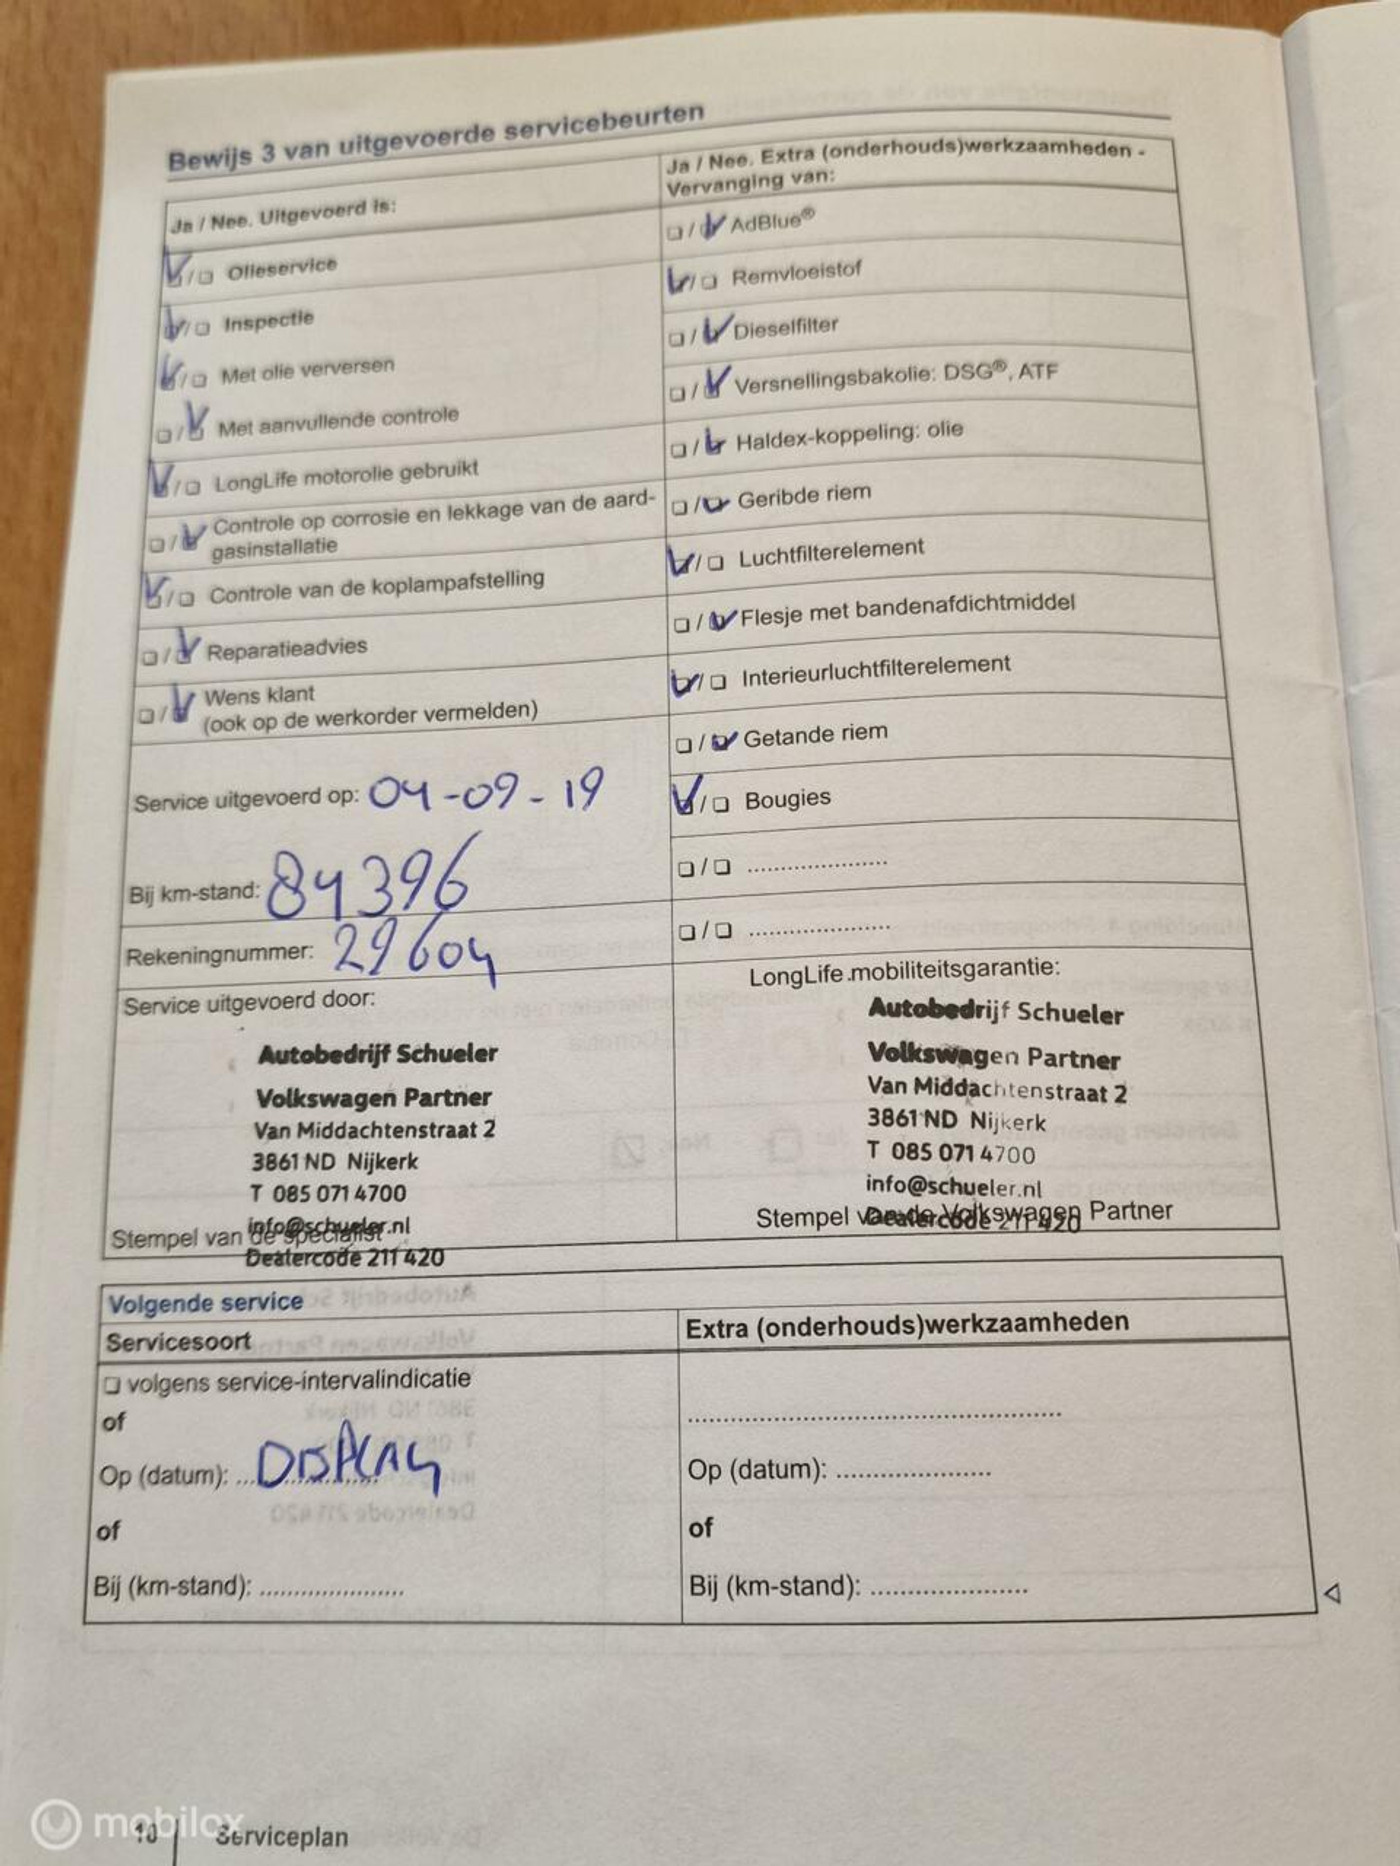 Bewijs 3 van uitgevoerde servicebeurten
Ja / Nee. Uitgevoerd is:
☑/❏ Olieservice
☑/❏ Inspectie
☑/❏ Met olie verversen
❏/☑ Met aanvullende controle
☑/❏ LongLife motorolie gebruikt
❏/☑ Controle op corrosie en lekkage van de aard-
gasinstallatie
☑/❏ Controle van de koplampafstelling
❏/☑ Reparatieadvies
❏/☑ Wens klant
(ook op de werkorder vermelden)
Service uitgevoerd op: 04-09-19
Bij km-stand: 84396
Rekeningnummer: 29604
Service uitgevoerd door:
Autobedrijf Schueler
Volkswagen Partner
Van Middachtenstraat 2
3861 ND Nijkerk
T 085 071 4700
info@schueler.nl
Stempel van de specialist
Dealercode 211 420
Ja / Nee. Extra (onderhouds)werkzaamheden -
Vervanging van:
❏/☑ AdBlue®
☑/❏ Remvloeistof
❏/☑ Dieselfilter
❏/☑ Versnellingsbakolie: DSG®, ATF
❏/☑ Haldex-koppeling: olie
❏/☑ Geribde riem
☑/❏ Luchtfilterelement
❏/☑ Flesje met bandenafdichtmiddel
☑/❏ Interieurluchtfilterelement
❏/☑ Getande riem
☑/❏ Bougies
❏/❏ .....................
❏/❏ .....................
LongLife.mobiliteitsgarantie:
Autobedrijf Schueler
Volkswagen Partner
Van Middachtenstraat 2
3861 ND Nijkerk
T 085 071 4700
info@schueler.nl
Stempel van de Volkswagen Partner
Dealercode 211 420
Volgende service
Servicesoort
❏ volgens service-intervalindicatie
of
Op (datum): DISPLAY
of
Bij (km-stand): .....................
Extra (onderhouds)werkzaamheden
.....................................................
Op (datum): ......................
of
Bij (km-stand): ......................
mobilox
10 Serviceplan